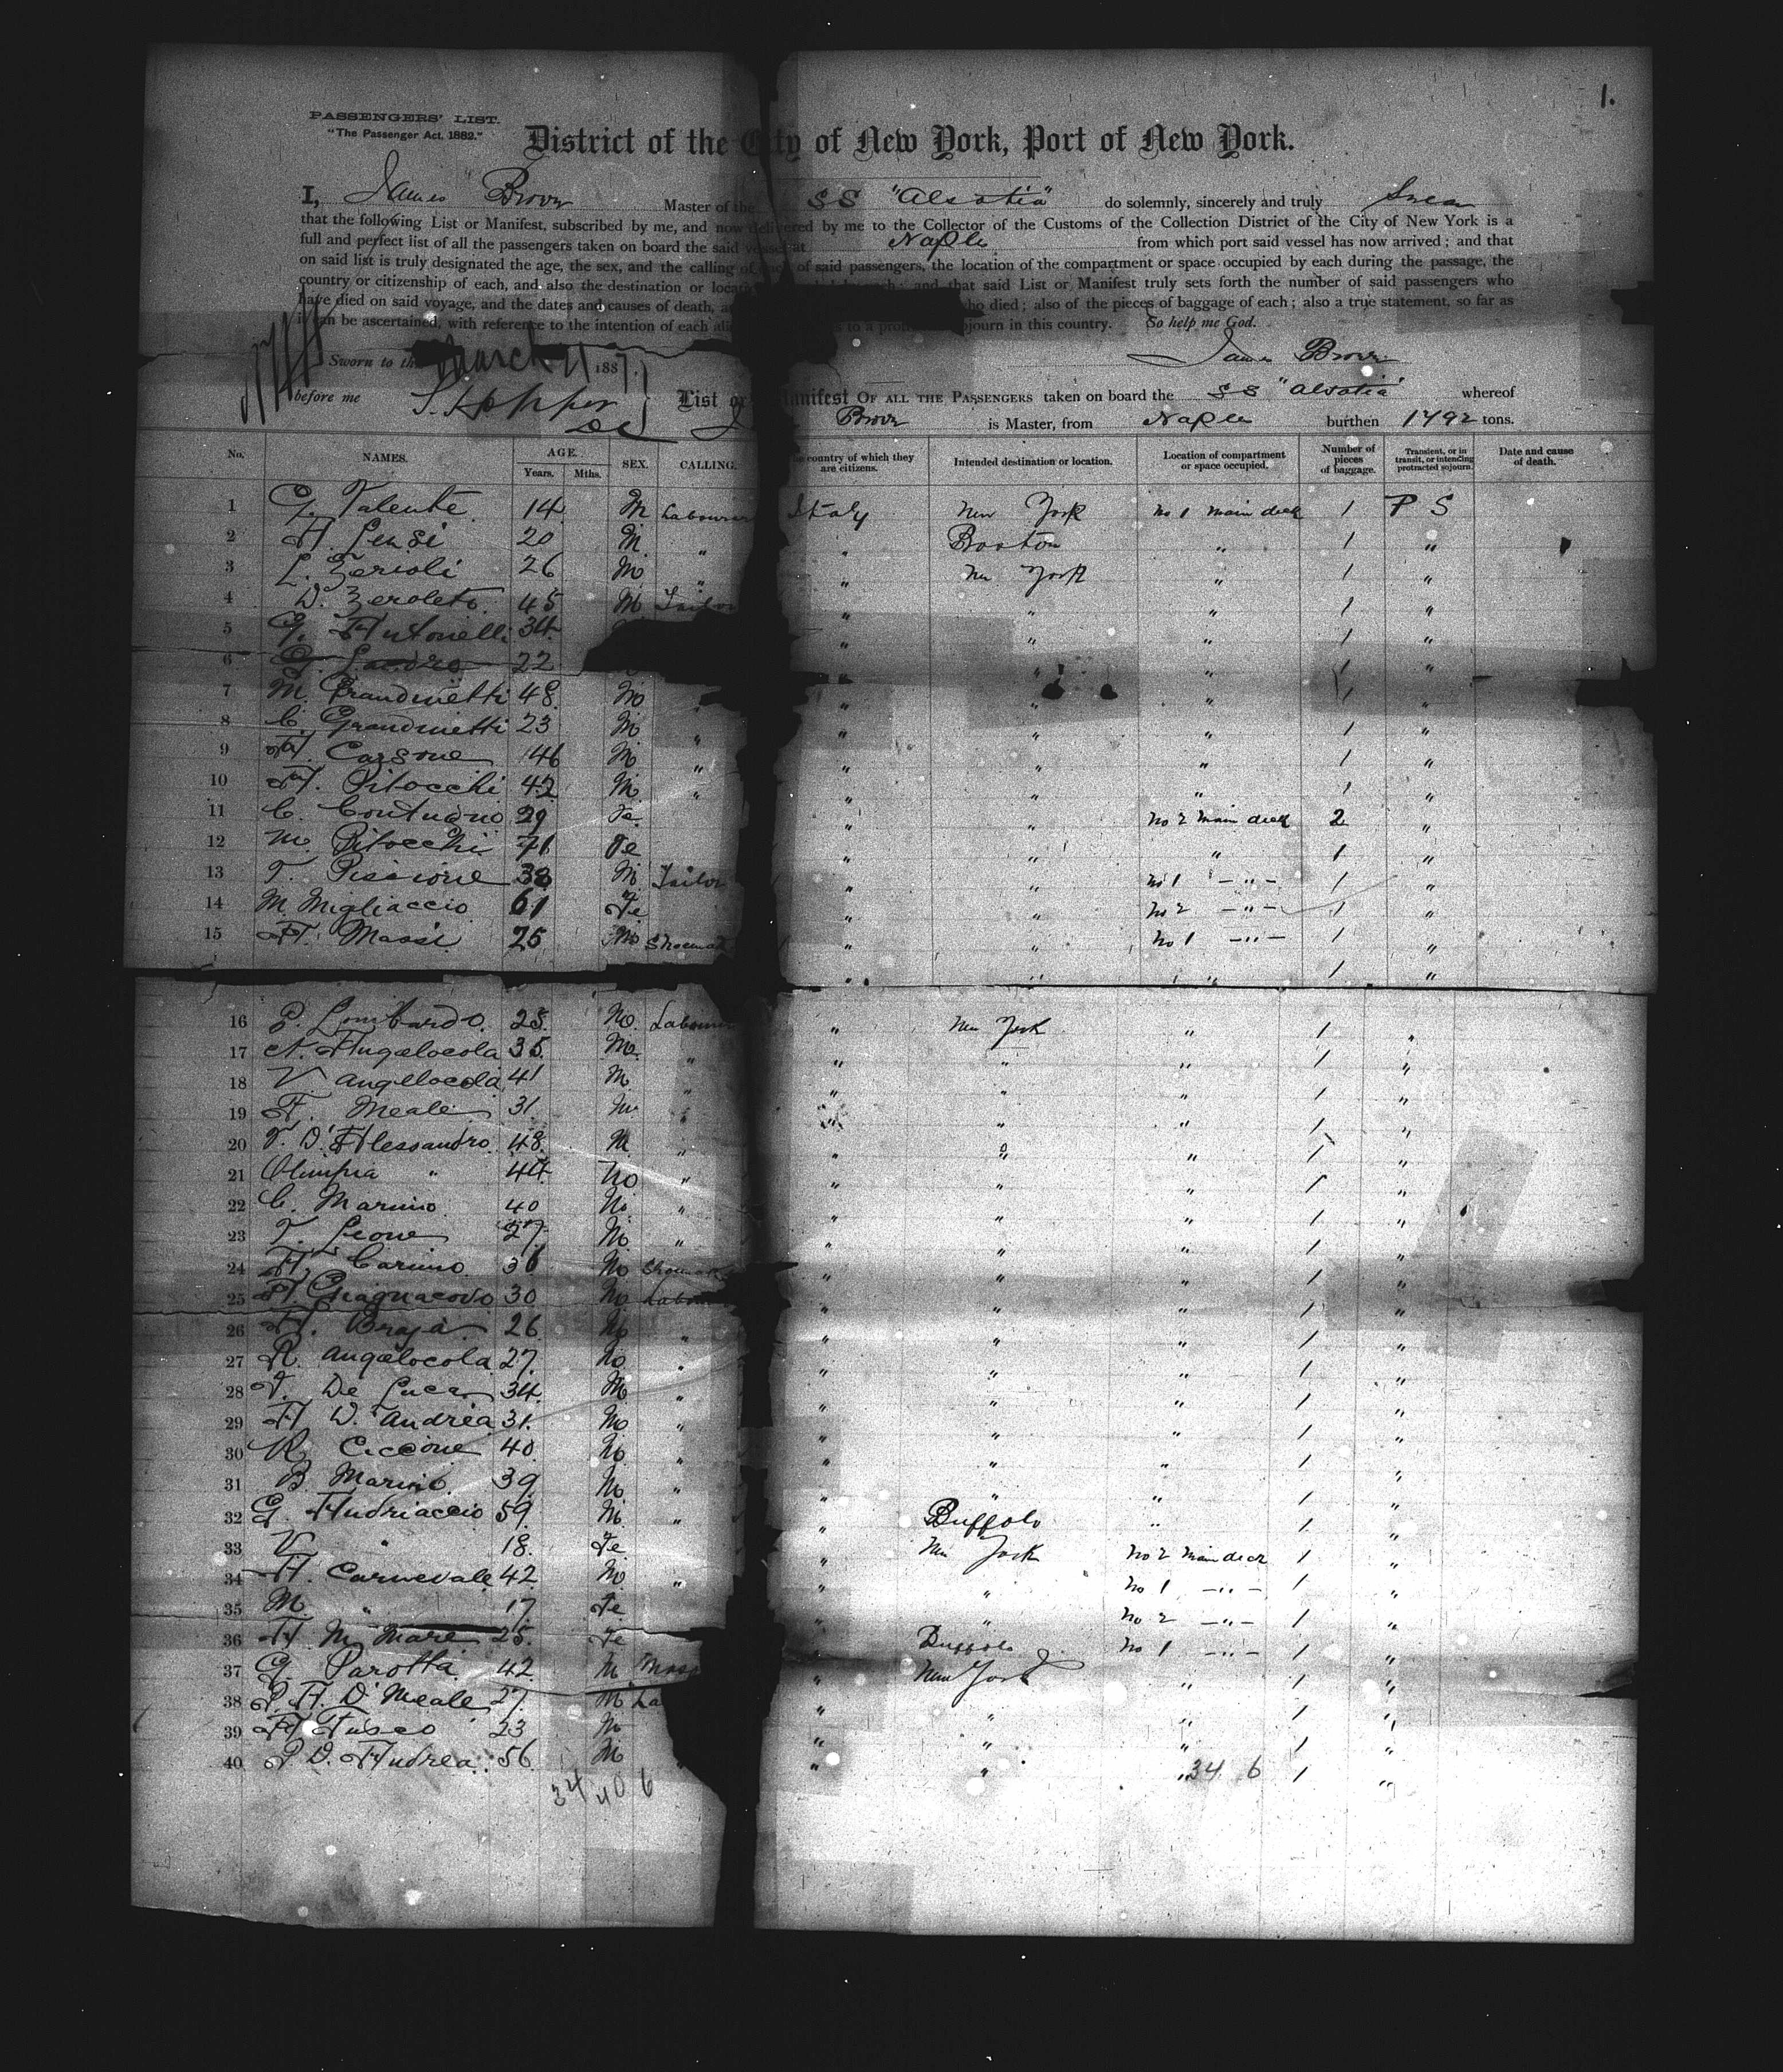 1.
PASSENGERS' LIST.
"The Passenger Act, 1882."
District of the City of New York, Port of New York.
I, James Brown Master of the SS "Alsatia" do solemnly, sincerely and truly Swear
that the following List or Manifest, subscribed by me, and now delivered by me to the Collector of the Customs of the Collection District of the City of New York is a
full and perfect list of all the passengers taken on board the said vessel at Naples from which port said vessel has now arrived; and that
on said list is truly designated the age, the sex, and the calling of each of said passengers, the location of the compartment or space occupied by each during the passage, the
country or citizenship of each, and also the destination or location and that said List or Manifest truly sets forth the number of said passengers who
have died on said voyage, and the dates and causes of death, who died; also of the pieces of baggage of each; also a true statement, so far as
it can be ascertained, with reference to the intention of each to a sojourn in this country. So help me God.
Sworn to the March 11 1887. James Brown
before me
List or Manifest OF ALL THE PASSENGERS taken on board the SS "Alsatia" whereof
J Brown is Master, from Naples burthen 1792 tons.
No. NAMES. AGE. Years. Mths. SEX. CALLING. country of which they are citizens. Intended destination or location. Location of compartment or space occupied. Number of pieces of baggage. Transient, or in transit, or intending protracted sojourn. Date and cause of death.
1 G. Valente 14 M Labourer Italy New York No 1 main deck 1 P S
2 A. Sensi 20 M. " " Boston " 1 "
3 L. Zerioli 26 M " " New York " 1 "
4 D. Zeroleto 45 M Tailor " " " 1 "
5 G. Antonelli 34 " " " 1 "
6 22 " " 1 "
7 M. Grandinetti 48 M " " " " 1 "
8 C. Grandinetti 23 M " " " " 1 "
9 A. Carsone 46 M " " " " 1 "
10 A. Pitocchi 42 M " " " " 1 "
11 C. Contugno 29 Fe. " " No 2 main deck 2 "
12 M. Pitocchi 71 Fe " " " 1 "
13 T. Piscione 38 M Tailor " " No 1 - " - 1 "
14 M Migliaccio 61 Fe " " No 2 - " - 1 "
15 A. Massi 25 M Shoemak " " No 1 - " - 1 "
" " " 1 "
16 G. Lombardo 25. M. Labourer " New York " 1 "
17 N. Angelocola 35. M. " " " " 1 "
18 V. Angelocola 41 M. " " " " 1 "
19 F. Meale 31. M " " " " 1 "
20 T. D'Alessandro 48. M. " " " " 1 "
21 Olimpia " 44 M " " " " 1 "
22 C. Marino 40 M. " " " " 1 "
23 T. Leone 27. M. " " " " 1 "
24 A. Carino 36 M Shoemak " " " 1 "
25 A Gragnacovo 30 M Labourer " " " 1 "
26 A. Braja 26 M " " " " 1 "
27 R. Angelocola 27. M " " " " 1 "
28 V. De Luca 34. M " " " " 1 "
29 A D. Andrea 31. M " " " " 1 "
30 R. Ciccone 40. M " " " " 1 "
31 B Marino 39. M " " " " 1 "
32 G. Andriaccio 59. M. " " Buffolo " 1 "
33 V " 18. Fe " New York No 2 Main deck 1 "
34 A. Carnevale 42 M " " " No 1 - " - 1 "
35 M. " 17. Fe " " No 2 - " - 1 "
36 A M Mare 25. Fe Buffolo No 1 - " - 1 "
37 G. Parotta 42 M " New York " 1 "
38 P. A. D'Meale 27. M La " " " 1 "
39 A Fusco 23 M " " " 1 "
40 P D. Andrea 56. M " " " " 1 "
34 40 6 34 6